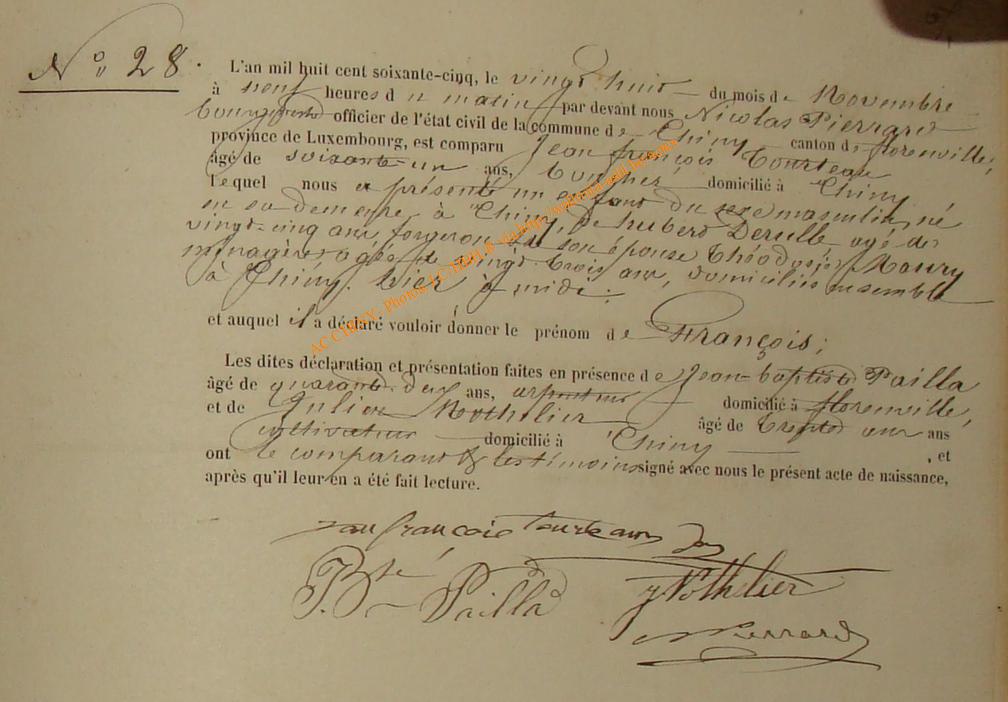 N° 28.
L'an mil huit cent soixante-cinq, le vingt huit du mois de Novembre
à neuf heures du matin par devant nous Nicolas Pierrard
bourgmestre officier de l'état civil de la commune de Chiny canton de florenville,
province de Luxembourg, est comparu Jean françois Tourteau
âgé de soixante-un ans, domicilié à Chiny
lequel nous a présenté un enfant du sexe masculin né
en sa demeure à Chiny, de hubert âgé de
vingt-cinq ans forgeron et de son épouse Théodosie Maury
ménagère âgée de vingt trois ans, domiciliés ensemble
à Chiny. hier à midi;
et auquel il a déclaré vouloir donner le prénom de François;
Les dites déclaration et présentation faites en présence de Jean-baptiste Pailla
âgé de quarante-deux ans, arpenteur domicilié à florenville,
et de Julien Nothelier âgé de trente ans ans
cultivateur domicilié à Chiny , et
ont le comparant & les témoins signé avec nous le présent acte de naissance,
après qu'il leur en a été fait lecture.
Jean françois tourteau
J. Bte Pailla
J Nothelier
N Pierrard